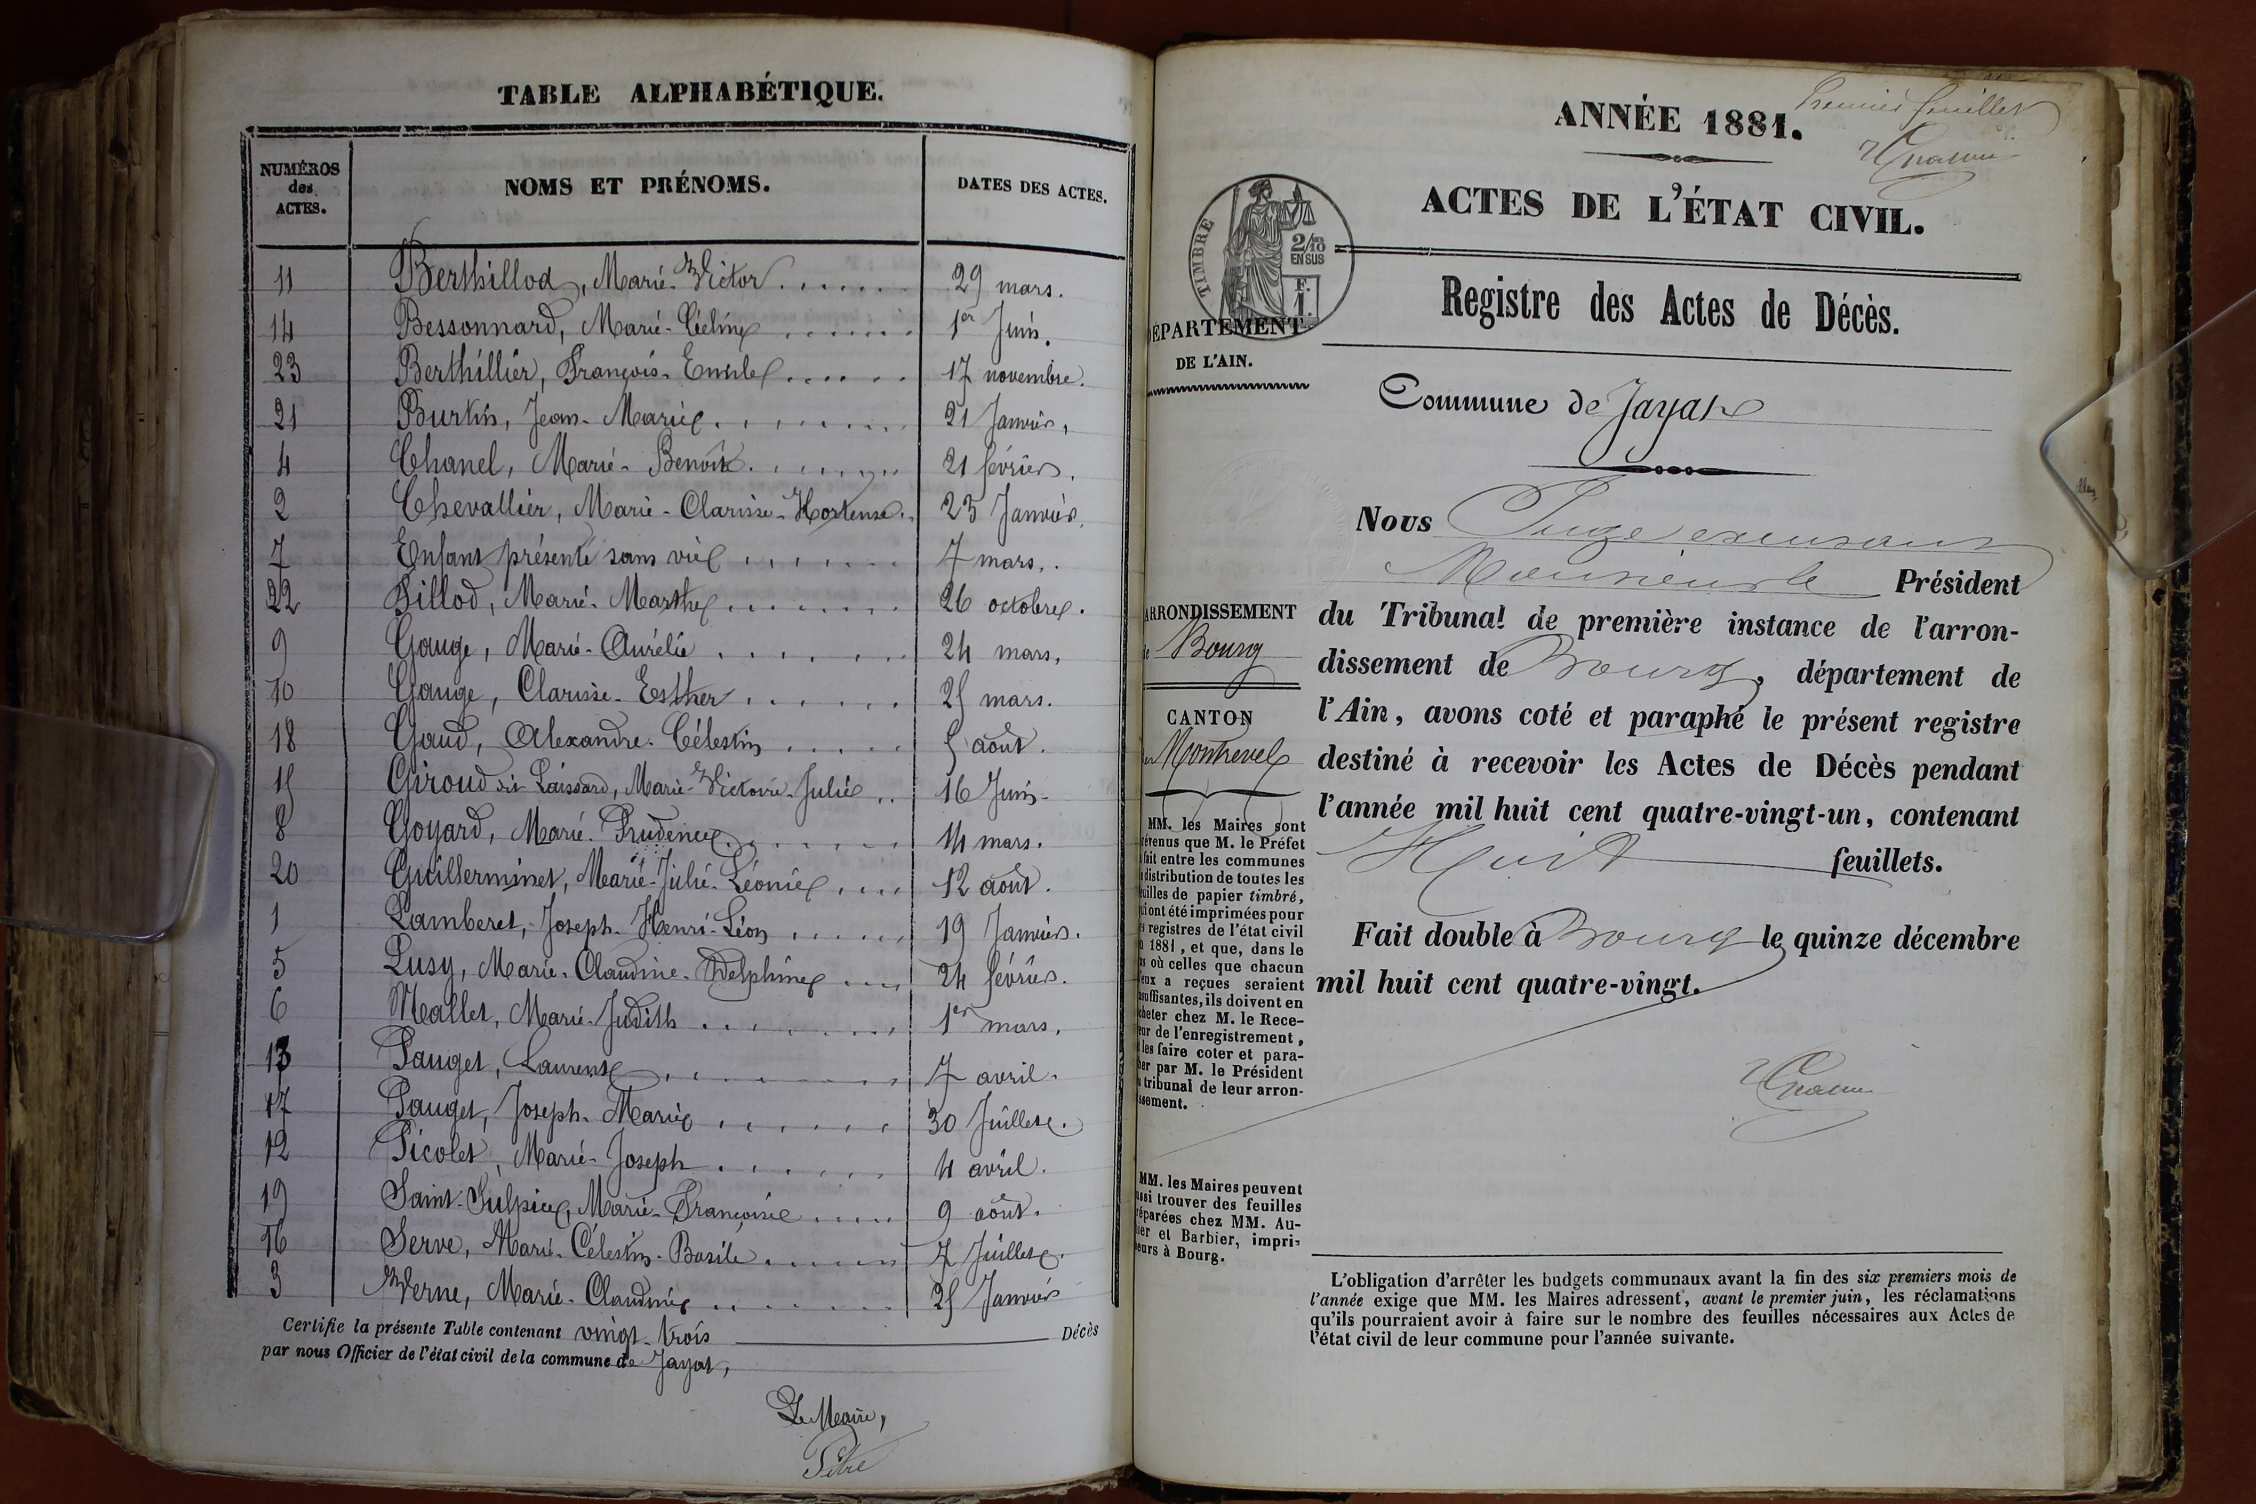 TABLE ALPHABÉTIQUE.
NUMÉROS des ACTES. NOMS ET PRÉNOMS. DATES DES ACTES.
11 Berthillod, Marie-Victor 29 mars.
14 Bessonnard, Marie-Céline 1er Juin.
23 Berthillier, François-Emile 17 novembre.
21 Burtin, Jean-Marie 21 Janvier,
4 Chanel, Marie-Benoît 21 février.
2 Chevallier, Marie-Clarisse-Hortense 23 Janvier.
7 Enfant présenté sans vie 7 mars.
22 Fillod, Marie-Marthe 26 octobre.
9 Gauge, Marie-Aurélie 24 mars.
10 Gauge, Clarisse-Esther 25 mars.
18 Gaud, Alexandre-Célestin 5 août.
15 Giroud dit Laissard, Marie-Victorie-Julie 16 Juin.
8 Goyard, Marie-Prudence 14 mars.
20 Guillerminet, Marie-Julie-Léonie 12 août.
1 Lamberet, Joseph-Henri-Léon 19 Janvier.
5 Lusy, Marie-Claudine-Delphine 24 février.
6 Mallet, Marie-Judith 1er mars.
13 Pauget, Laurent 7 avril.
17 Pauget, Joseph-Marie 30 Juillet.
12 Picolet, Marie-Joseph 4 avril.
19 Saint-Sulpice, Marie-Françoise 9 août.
16 Serve, Marie-Célestin-Basile 7 Juillet.
3 Verne, Marie-Claudine 25 Janvier
Certifie la présente Table contenant vingt-trois Décès
par nous Officier de l'état civil de la commune de Jayat,
Le Maire,
Premier feuillet
ANNÉE 1881.
ACTES DE L'ÉTAT CIVIL.
TIMBRE
2/10
EN SUS
F.
1.
Registre des Actes de Décès.
DÉPARTEMENT
DE L'AIN.
Commune de Jayat
Nous Juge excusant
Monsieur le Président
du Tribunal de première instance de l'arron-
dissement de Bourg, département de
l'Ain, avons coté et paraphé le présent registre
destiné à recevoir les Actes de Décès pendant
l'année mil huit cent quatre-vingt-un, contenant
Huit feuillets.
Fait double à Bourg le quinze décembre
mil huit cent quatre-vingt.
ARRONDISSEMENT
de Bourg
CANTON
de Montrevel
MM. les Maires sont
prévenus que M. le Préfet
fait entre les communes
la distribution de toutes les
feuilles de papier timbré,
qui ont été imprimées pour
les registres de l'état civil
de 1881, et que, dans le
cas où celles que chacun
d'eux a reçues seraient
insuffisantes, ils doivent en
acheter chez M. le Rece-
veur de l'enregistrement,
et les faire coter et para-
pher par M. le Président
du tribunal de leur arron-
dissement.
MM. les Maires peuvent
aussi trouver des feuilles
préparées chez MM. Au-
thier et Barbier, impri-
meurs à Bourg.
L'obligation d'arrêter les budgets communaux avant la fin des six premiers mois de
l'année exige que MM. les Maires adressent, avant le premier juin, les réclamations
qu'ils pourraient avoir à faire sur le nombre des feuilles nécessaires aux Actes de
l'état civil de leur commune pour l'année suivante.